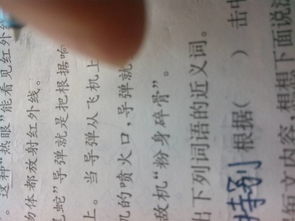 。这种“热眼”能看见红外
物体都放射红外线。
尾蛇”导弹就是把根据响
上。当导弹从飞机上
机的喷火口,导弹就
敌机“粉身碎骨”。
出下列词语的近义词。
特别 根据( ) 击中
短文内容,想想下面说法